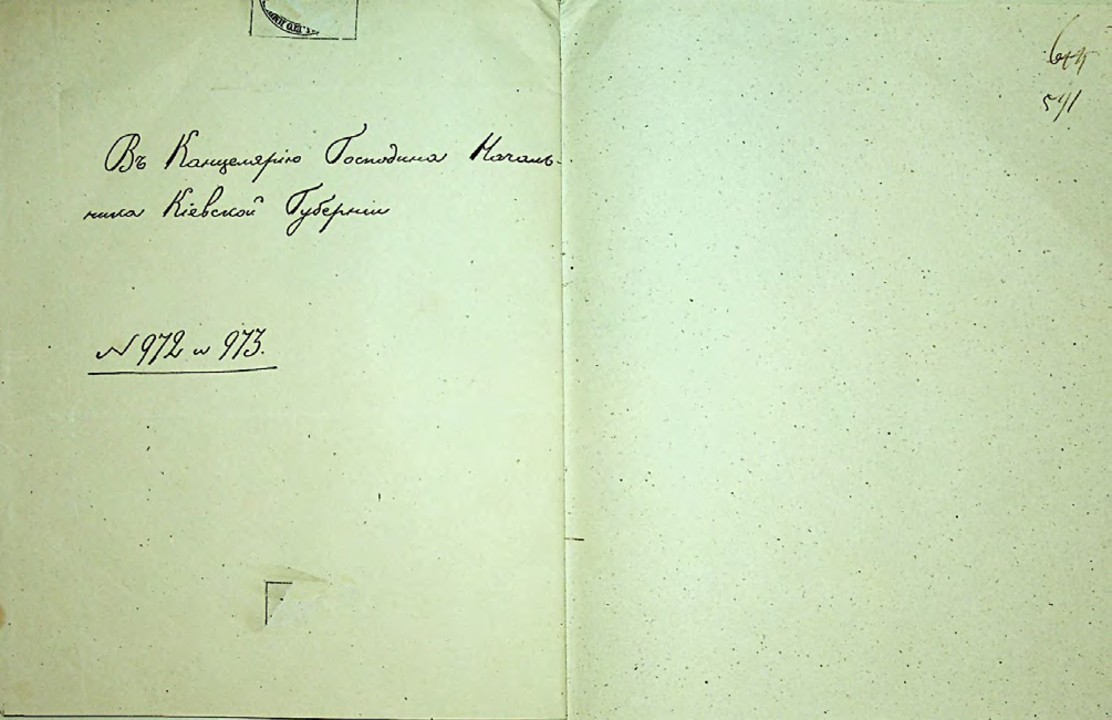 Въ Канцелярію Господина Началь-
ника Кіевской Губерніи
N 972 и 973.
591